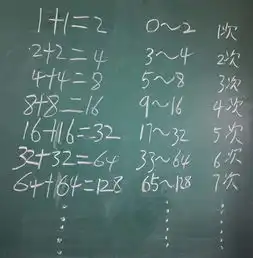 1+1=2 0~2 1次
2+2=4 3~4 2次
4+4=8 5~8 3次
8+8=16 9~16 4次
16+16=32 17~32 5次
32+32=64 33~64 6次
64+64=128 65~128 7次